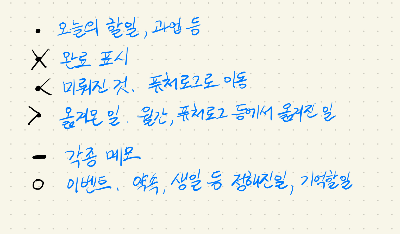 • 오늘의 할일, 과업 등
× 완료 표시
< 미뤄진 것. 퓨처로그로 이동
> 옮겨온 일. 월간, 퓨처로그 등에서 옮겨진 일
- 각종 메모
○ 이벤트. 약속, 생일 등 정해진일, 기억할일